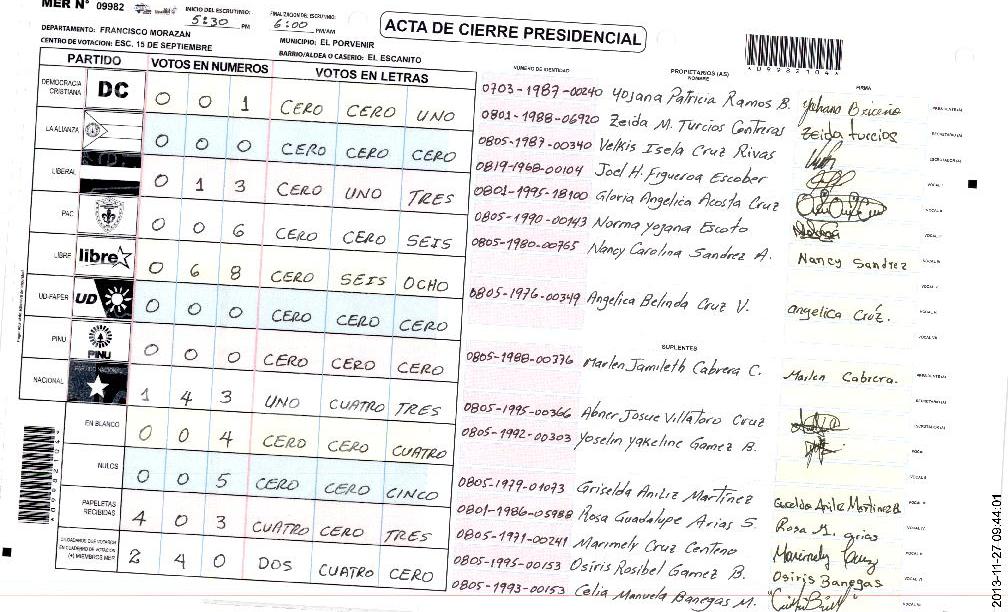 MER N° 09982
INICIO DEL ESCRUTINIO: 5:30 PM
FINALIZACION DEL ESCRUTINIO: 6:00 PM/AM
ACTA DE CIERRE PRESIDENCIAL
DEPARTAMENTO: FRANCISCO MORAZAN
MUNICIPIO: EL PORVENIR
CENTRO DE VOTACION: ESC. 15 DE SEPTIEMBRE
BARRIO/ALDEA O CASERIO: EL ESCANITO
PARTIDO VOTOS EN NUMEROS VOTOS EN LETRAS
DEMOCRACIA CRISTIANA DC 0 0 1 CERO CERO UNO
LA ALIANZA 0 0 0 CERO CERO CERO
LIBERAL 0 1 3 CERO UNO TRES
PAC 0 0 6 CERO CERO SEIS
LIBRE libre 0 6 8 CERO SEIS OCHO
UD-FAPER UD 0 0 0 CERO CERO CERO
PINU PINU 0 0 0 CERO CERO CERO
NACIONAL 1 4 3 UNO CUATRO TRES
EN BLANCO 0 0 4 CERO CERO CUATRO
NULOS 0 0 5 CERO CERO CINCO
PAPELETAS RECIBIDAS 4 0 3 CUATRO CERO TRES
CIUDADANOS QUE VOTARON EN CUADERNO DE VOTACION (+) MIEMBROS MER 2 4 0 DOS CUATRO CERO
NUMERO DE IDENTIDAD PROPIETARIOS (AS) NOMBRE FIRMA
0703-1987-00240 Yojana Patricia Ramos B.
0801-1988-06920 Zeida M. Turcios Contreras Zeida Turcios
0805-1987-00340 Velkis Isela Cruz Rivas
0819-1968-00104 Joel H. Figueroa Escober
0801-1995-18100 Gloria Angelica Acosta Cruz
0805-1990-00143 Norma Yojana Escoto
0805-1980-00765 Nancy Carolina Sandrez A. Nancy Sandrez
0805-1976-00349 Angelica Belinda Cruz V. angelica Cruz.
SUPLENTES
0805-1988-00376 Marlen Jamileth Cabrera C. Marlen Cabrera.
0805-1995-00366 Abner Josue Villatoro Cruz
0805-1992-00303 Yoselin Yakeline Gamez B.
0805-1979-01073 Griselda Aniliz Martinez
0801-1986-05988 Rosa Guadalupe Arias S. Rosa G. arias
0805-1971-00241 Marimely Cruz Centeno Marimely Cruz
0805-1995-00153 Osiris Rosibel Gamez B. Osiris Banegas
0805-1993-00153 Celia Manuela Banegas M.
2013-11-27 09:44:01